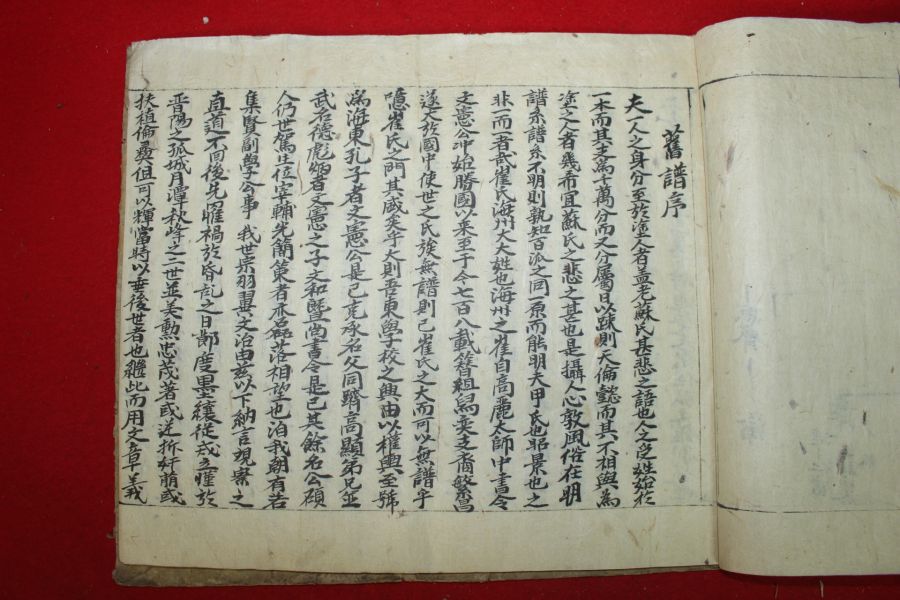 舊譜序
夫一人之身分至於塗人者盖老蘇氏甚悲之語也人之受姓始於
一本而其支爲千萬分而又分屬日以踈則天倫懿而其不相與爲
塗之人者幾希宜蘇氏之悲之甚也是攝人心敦風俗在明
譜系譜系不明則孰知百派之同一原而能明夫甲氏也昭景也之
非一而二者哉崔氏海州大姓也海州之崔自高麗太師中書令
文憲公冲始勝國以來至于今七百八載簪組舄奕支裔繁昌
遂大於國中使世之氏族無譜則已崔氏之大而可以無譜乎
噫崔氏之門其盛矣乎夫則吾東學校之興由以權輿至號
爲海東孔子者文憲公是已克承名父同躋高顯弟兄並
武名德彪炳者文憲之子文和曁尙書令是已其餘名公碩
人仍世駕生位宰輔光簡策者亦磊落相望也洎我朝有若
集賢副學公事 我世宗羽翼文治由玆以下納言觀察之
直道不回後先罹禍於昏亂之日鄀度墨縗從戎立慬於
晋陽之孤城月潭秋峰之二世並美勳忠茂著或逆折奸萌或
扶植倫彝俱可以輝當時以垂後世者也繼此而用文章義